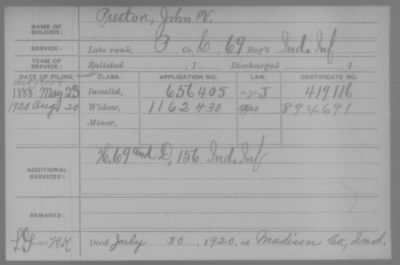 NAME OF SOLDIER: Preston, John V.
SERVICE: Late rank, P Co. C, 69 Reg't Ind. Inf
TERM OF SERVICE: Enlisted , 1 Discharged , 1
DATE OF FILING. CLASS. APPLICATION NO. LAW. CERTIFICATE NO.
1888 May 23 Invalid, 656405 J 419116
1920 Aug 20 Widow, 1162430 894691
Minor,
ADDITIONAL SERVICES: K, 69 and D, 156 Ind. Inf
REMARKS:
Died July 30, 1920, at Madison Co, Ind.